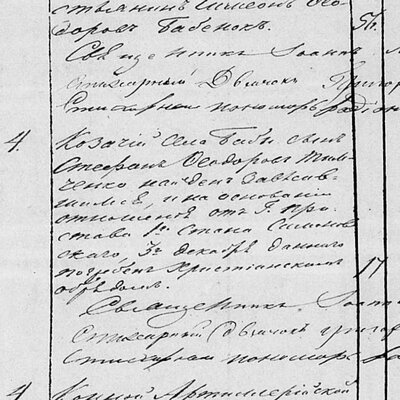 стьянинъ Симеонъ Ѳео-
доровъ Бабенокъ.
56.
Священникъ Іоаннъ
Стихарный Дьячокъ Григор
Стихарный пономарь Родіон
4. Козачій села Бабы сынъ
Стефанъ Ѳеодоровъ Тим-
ченко найденъ
шимся, и на основаніи
отношенія отъ Г. При-
става 1го Стана
скаго, 3го декабря даннаго
погребенъ Христіанскимъ
обрядомъ.
17
Священникъ Іоанн
Стихарный Дьячокъ Григор
Стихарный пономарь
4. Конной Артиллерійской